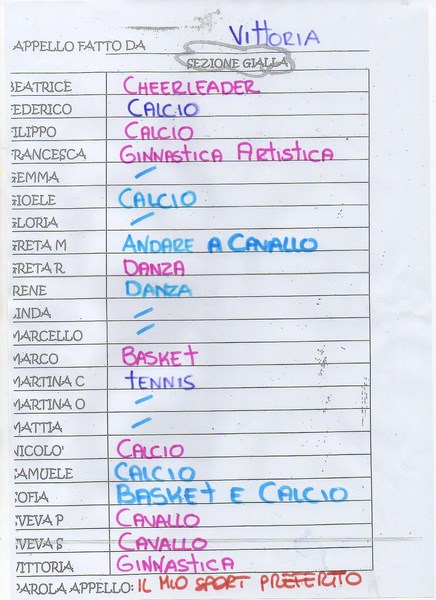 APPELLO FATTO DA VittORIA
SEZIONE GIALLA
BEATRICE CHEERLEADER
EDERICO CALCIO
ILIPPO CALCIO
FRANCESCA GINNASTICA ARTISTICA
GEMMA /
GIOELE CALCIO
GLORIA /
GRETA M ANDARE A CAVALLO
GRETA R DANZA
IRENE DANZA
LINDA /
MARCELLO /
MARCO BASKEt
MARTINA C tENNIS
MARTINA O /
MATTIA /
NICOLO' CALCIO
SAMUELE CALCIO
SOFIA BASKEt E CALCIO
SVEVA P CAVALLO
SVEVA S CAVALLO
VITTORIA GINNASTICA
PAROLA APPELLO: IL MIO SPORT PREFERITO